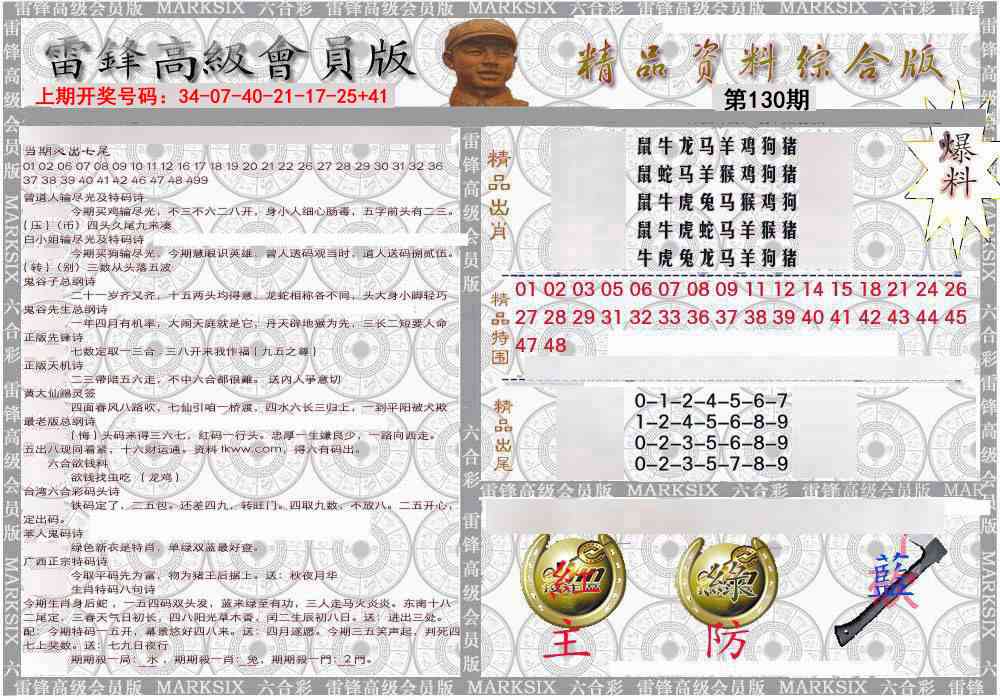 雷锋高级会员版 MARKSIX 六合彩 雷锋高级会员版 MARKSIX 六合彩 雷锋高级会员版 MARKSIX 六合彩 雷锋
雷鋒高級會員版
精品资料综合版
上期开奖号码：34-07-40-21-17-25+41
第130期
爆料
当期必出七尾
01 02 06 07 08 09 10 11 12 16 17 18 19 20 21 22 26 27 28 29 30 31 32 36
37 38 39 40 41 42 46 47 48 499
曾道人输尽光及特码诗
今期买鸡输尽光，不三不六二八开，身小人细心肠毒，五字前头有二三。
{压}（币）四头久尾九来凑
白小姐输尽光及特码诗
今期买狗输尽光，今期慧眼识英雄，曾人送码观当时，道人送码捌贰伍。
{转}（别）三数从头落五波
鬼谷子总纲诗
二十一岁齐又齐，十五两头均得意、龙蛇相称各不同，头大身小脚轻巧
鬼谷先生总纲诗
一年四月有机率，大闹天庭就是它，丹天辟地狱为先，三长二短要人命
正版先锋诗
七数定取一三合．三八开来我作福{九五之尊}
正版天机诗
二三带陪五六走，不中六合都很難。送內人爭意切
黄大仙赐灵签
四面春风八路吹，七仙引咱一桥渡，四水六长三归上，一到平阳被犬欺
最老版总纲诗
{悔}头码来得三六七，红码一行头。忠厚一生嫌良少，一路问西走。
五出八现问着紧，十六财运通。资料tkww.com，得六有码出。
六合欲钱料
欲钱找虫吃 （龙鸡）
台湾六合彩码头诗
铁码定了，二五包。还差四九，转旺门。四取九数，不放八。二五开心，
定出码。
苯人鬼码诗
绿色新衣是特肖，单绿双蓝最好查。
广西正宗特码诗
今取平码先为富，物为猪王后据上。送：秋夜月华
生肖特码八句诗
今期生肖身后蛇 ，一五四码双头发，蓝来绿至有功，三人走马火炎炎。东南十八
二尾定，三春天气日初长，四八阳光草木香，闰二生辰初八日。送：进出三处。
配：今期特码一五开，幕景悠好四八来。送：四月遂愿。今期三五笑声起，判死四
七上奖数。送：七九日夜行
期期殺一局：水 ，期期殺一肖：兔，期期殺一門：2門。
精品出肖
鼠牛龙马羊鸡狗猪
鼠蛇马羊猴鸡狗猪
鼠牛虎兔马猴鸡狗
鼠牛虎蛇马羊猴猪
牛虎兔龙马羊狗猪
精品特围
01 02 03 05 06 07 08 09 11 12 14 15 18 21 24 26
27 28 29 31 32 33 36 37 38 39 40 41 42 43 44 45
47 48
精品出尾
0-1-2-4-5-6-7
1-2-4-5-6-8-9
0-2-3-5-6-8-9
0-2-3-5-7-8-9
雷锋高级会员版 MARKSIX 六合彩 雷锋高级会员版 MARK
紅
主
綠
防
藍
雷锋高级会员版 MARKSIX 六合彩 雷锋高级会员版 MARKSIX 六合彩 雷锋高级会员版 MARKSIX 六合彩 雷锋